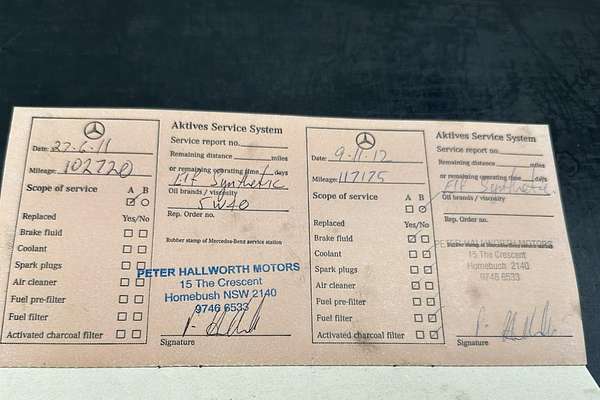 Aktives Service System
Date: 27-6-11
Service report no.
Remaining distance miles
Mileage: 102720
or remaining operating time / days
Elf Synthetic
Scope of service A B
Oil brands / viscosity
5W40
Replaced Yes/No
Rep. Order no.
Brake fluid
Rubber stamp of Mercedes-Benz service station
Coolant
Spark plugs
Air cleaner
Fuel pre-filter
Fuel filter
Activated charcoal filter
PETER HALLWORTH MOTORS
15 The Crescent
Homebush NSW 2140
9746 6533
Signature
Aktives Service System
Date: 9-11-12
Service report no.
Remaining distance miles
Mileage: 117175
or remaining operating time / days
Elf Synthetic
Scope of service A B
Oil brands / viscosity
Replaced Yes/No
Rep. Order no.
Brake fluid
Rubber stamp of Mercedes-Benz service station
Coolant
Spark plugs
Air cleaner
Fuel pre-filter
Fuel filter
Activated charcoal filter
PETER HALLWORTH MOTORS
15 The Crescent
Homebush 2140
9746 6533
Signature